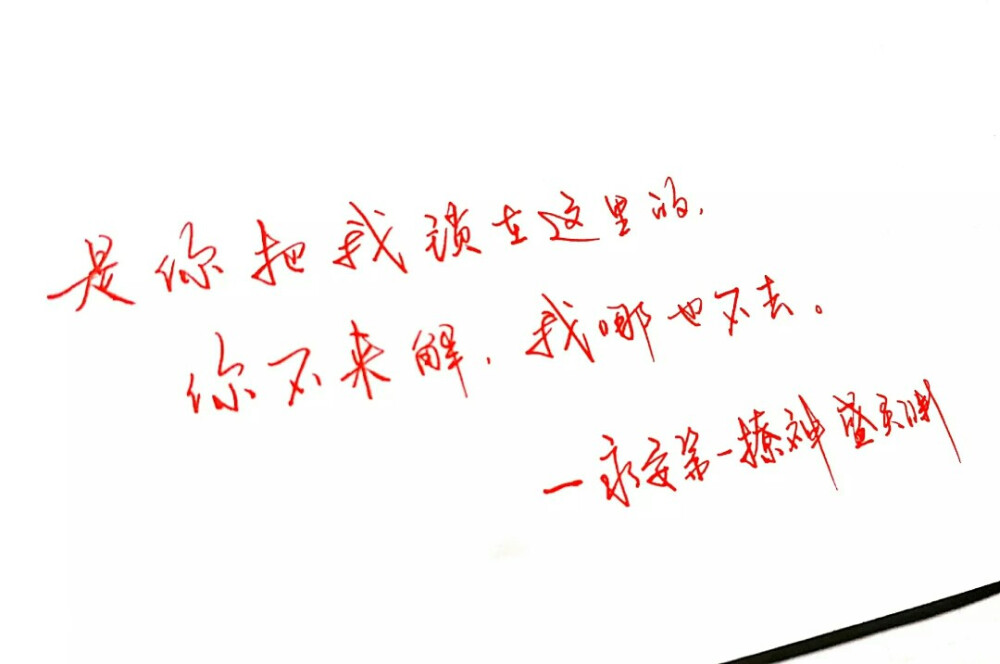 是你把我锁在这里的,
你不来解,我哪也不去。
—永安第一撩神 盛灵渊